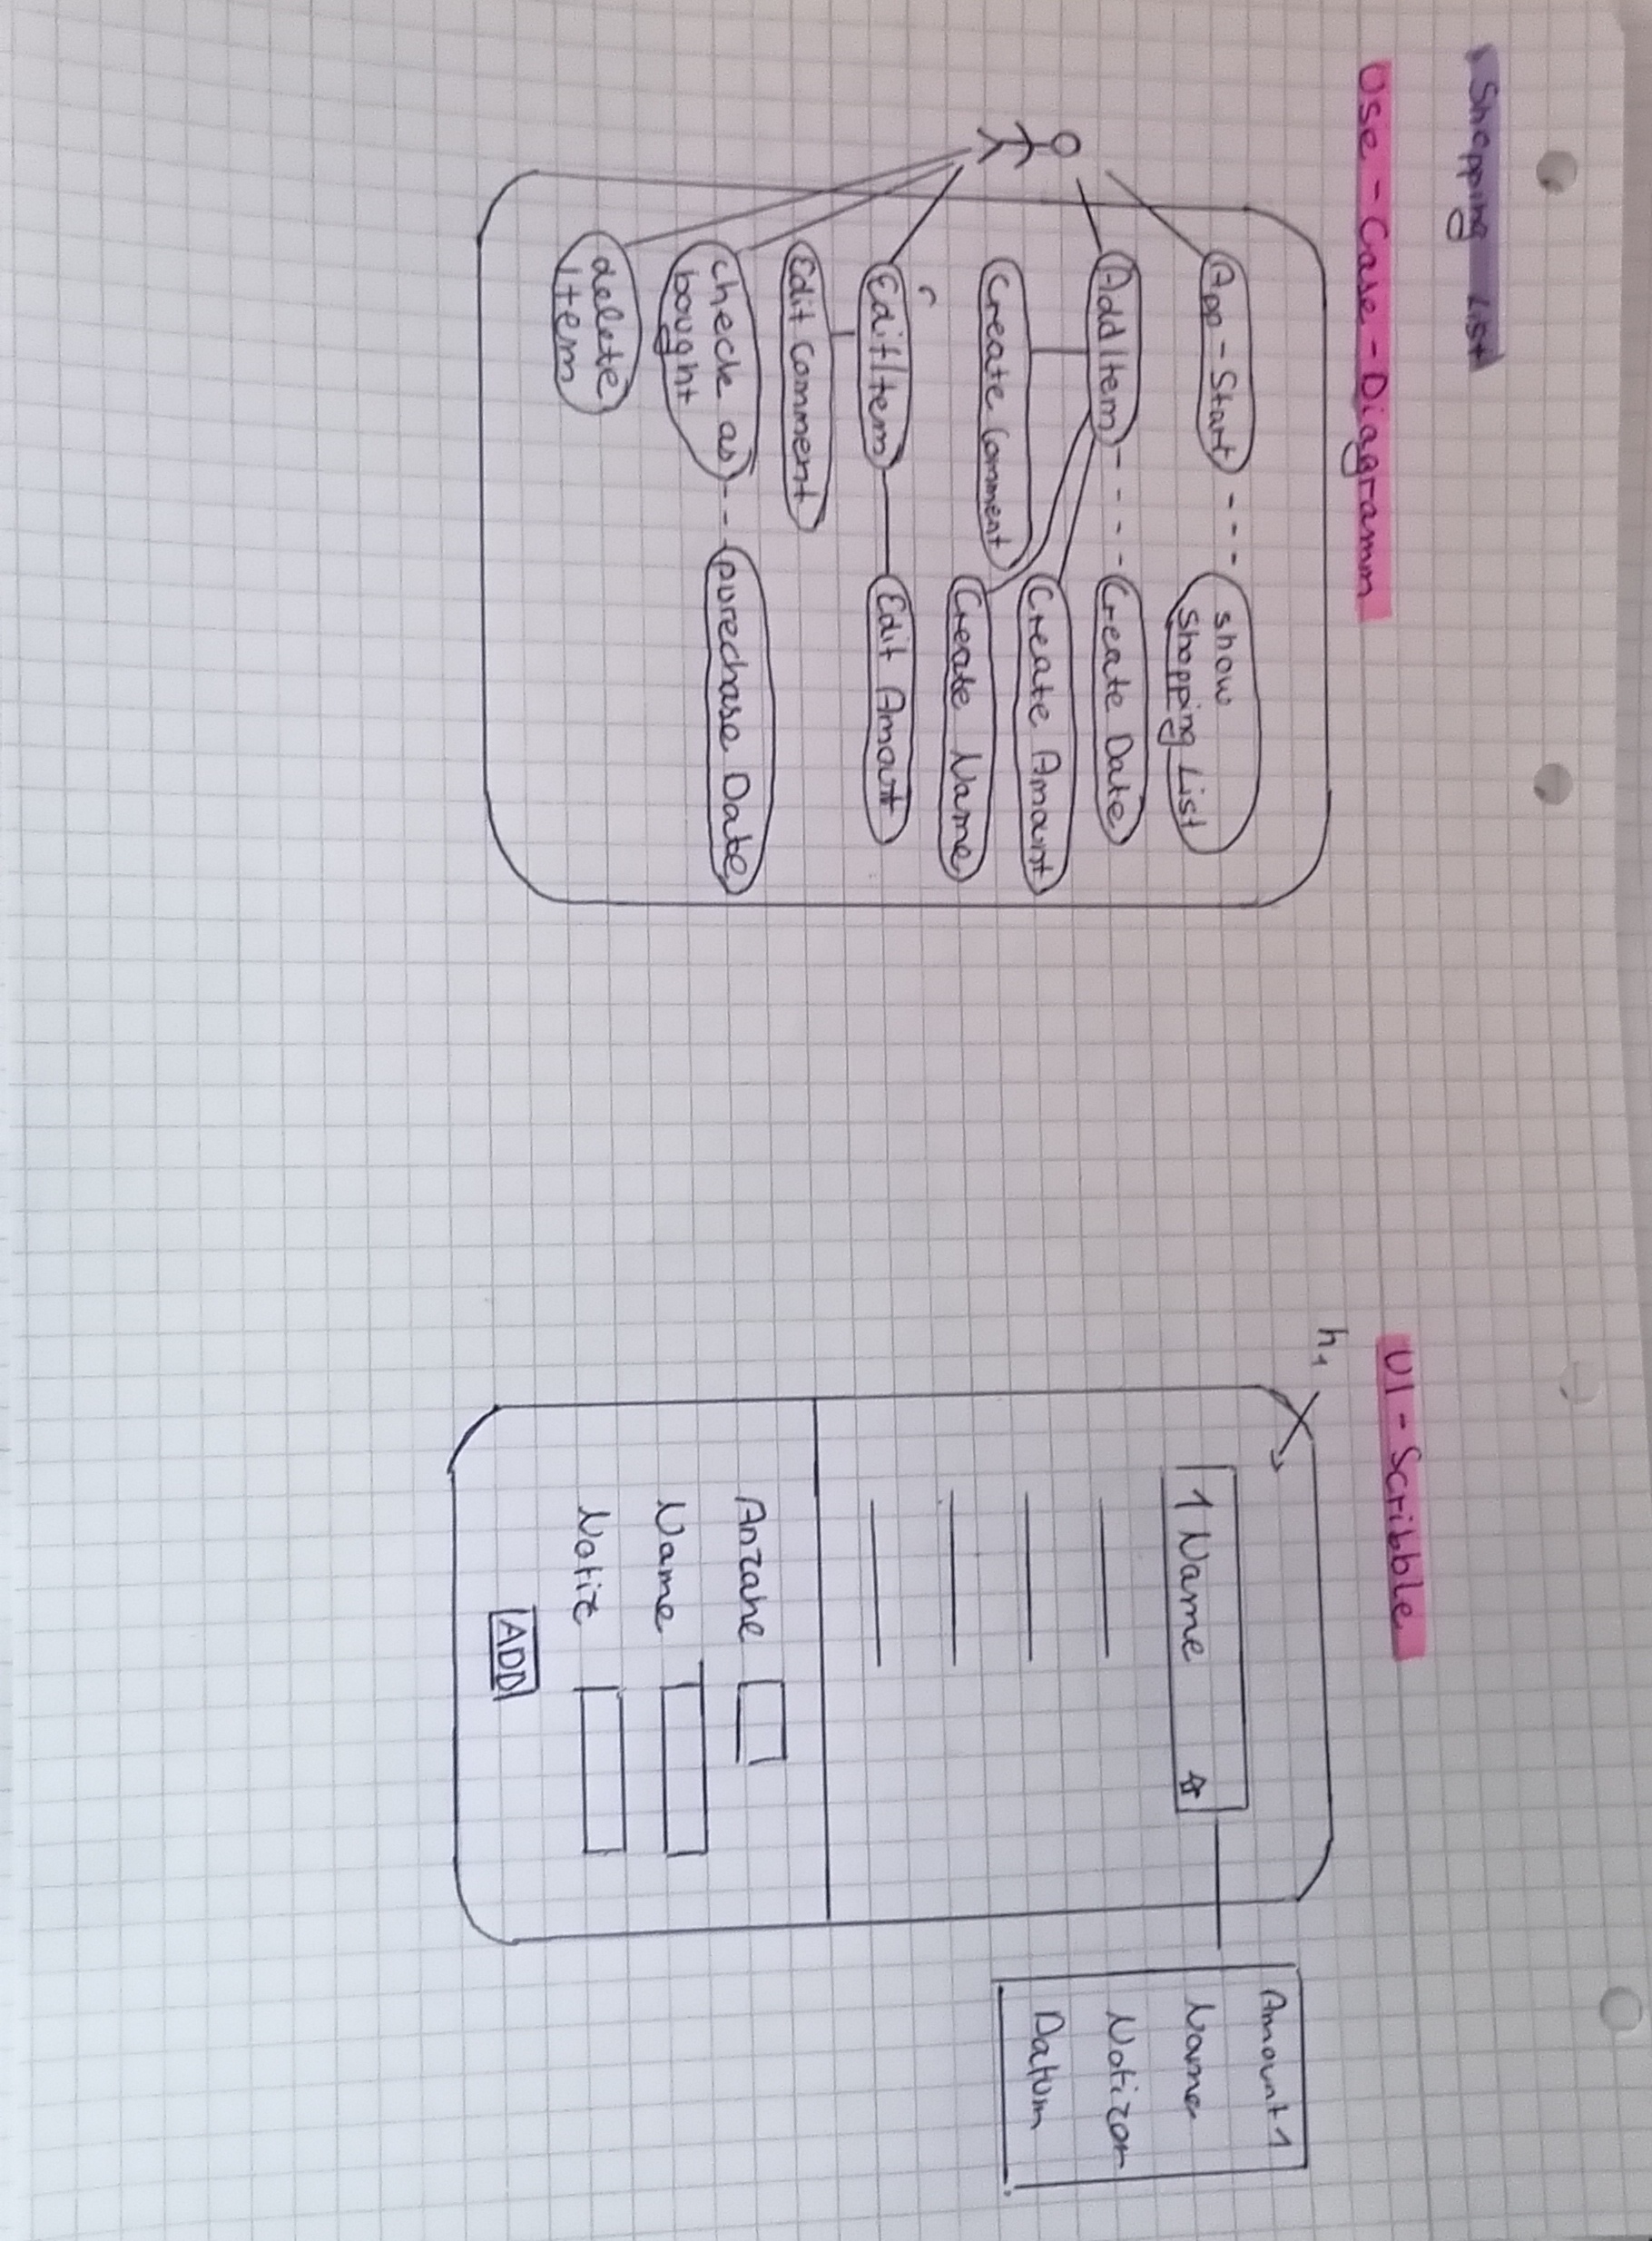 Shopping List
Use-Case-Diagramm
App-Start
show
Shopping List
Add Item
Create Date
Create Amount
Create Comment
Create Name
Edit Item
Edit Amount
Edit Comment
check as
bought
purechase Date
delete
Item
UI-Scribble
h1
1 Name
Anzahe
Name
Notiz
ADD
Amount 1
Name
Datum